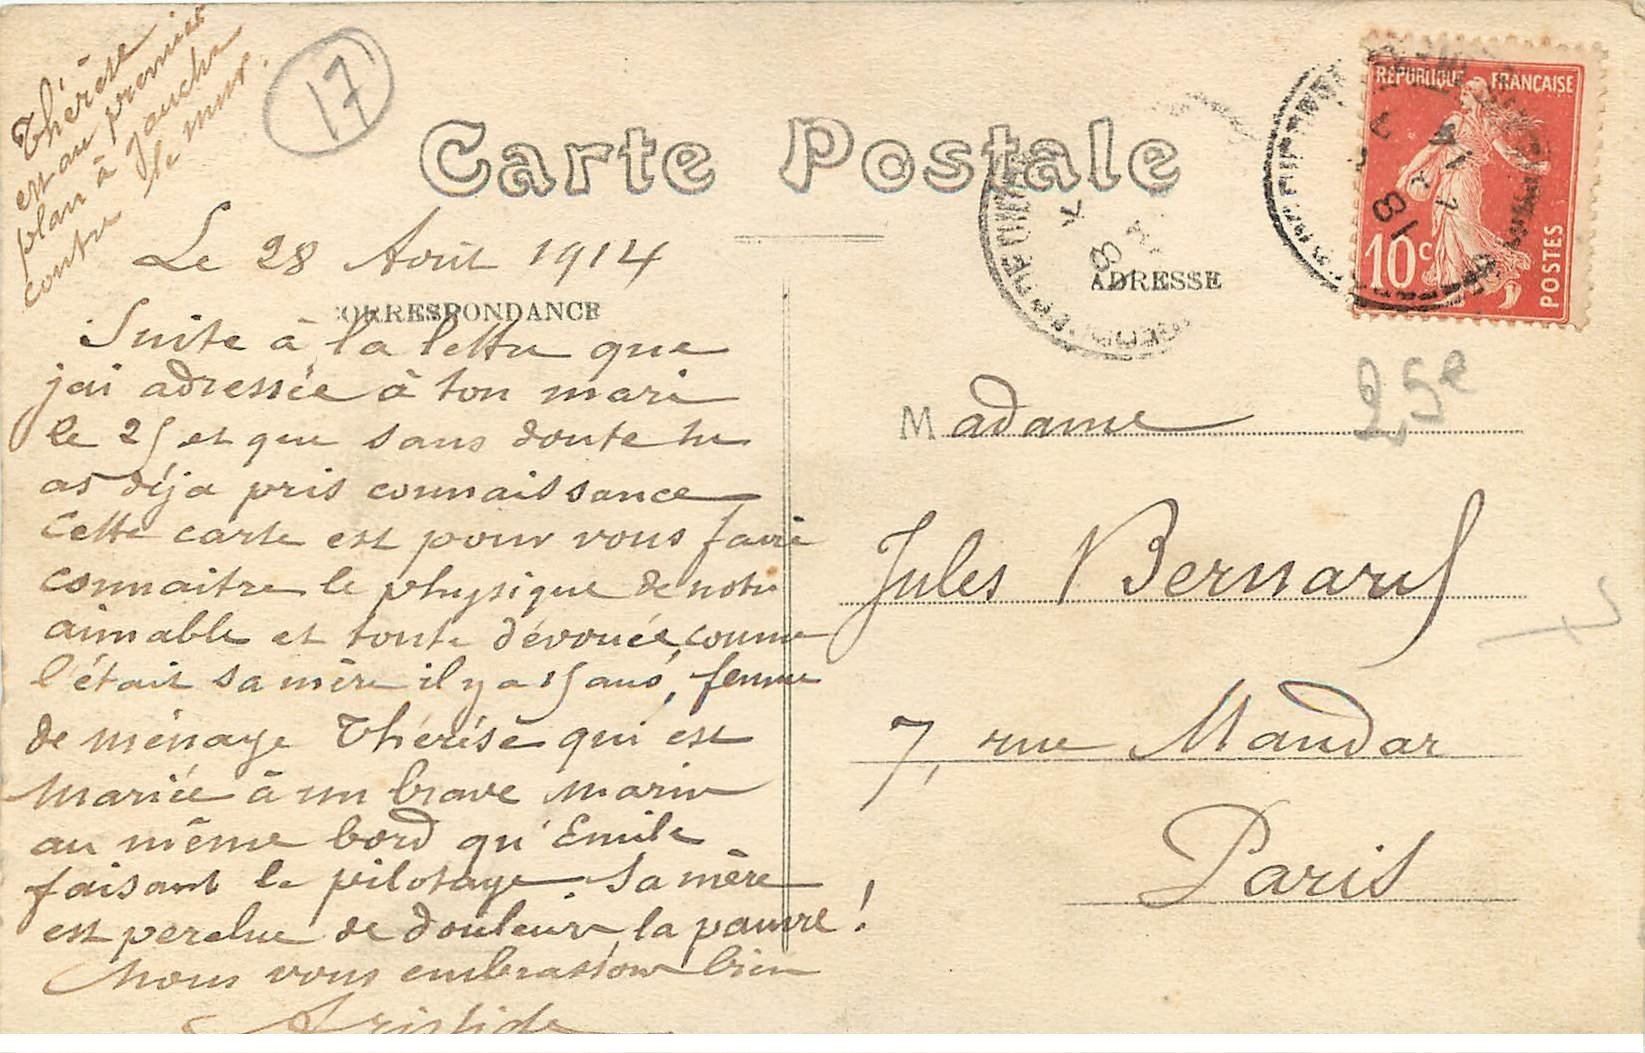 Thérèse
est au premier
plan à gauche
contre le mur.
17
Carte Postale
RÉPUBLIQUE FRANÇAISE
10c
POSTES
Le 28 Août 1914
CORRESPONDANCE
ADRESSE
Suite à la lettre que
j'ai adressée à ton mari
le 25 et que sans doute tu
as déja pris connaissance
Cette carte est pour vous faire
connaitre le physique de notre
aimable et toute dévouée, comme
l'était sa mère il y a 15 ans, femme
de ménage Thérèse qui est
mariée à un brave marin
au même bord qu'Emile
faisant le pilotage. Sa mère
est perclue de douleurs, la pauvre!
Nous vous embrassons bien
Aristide
25e
Madame
Jules Bernard
7, rue Mandar
Paris